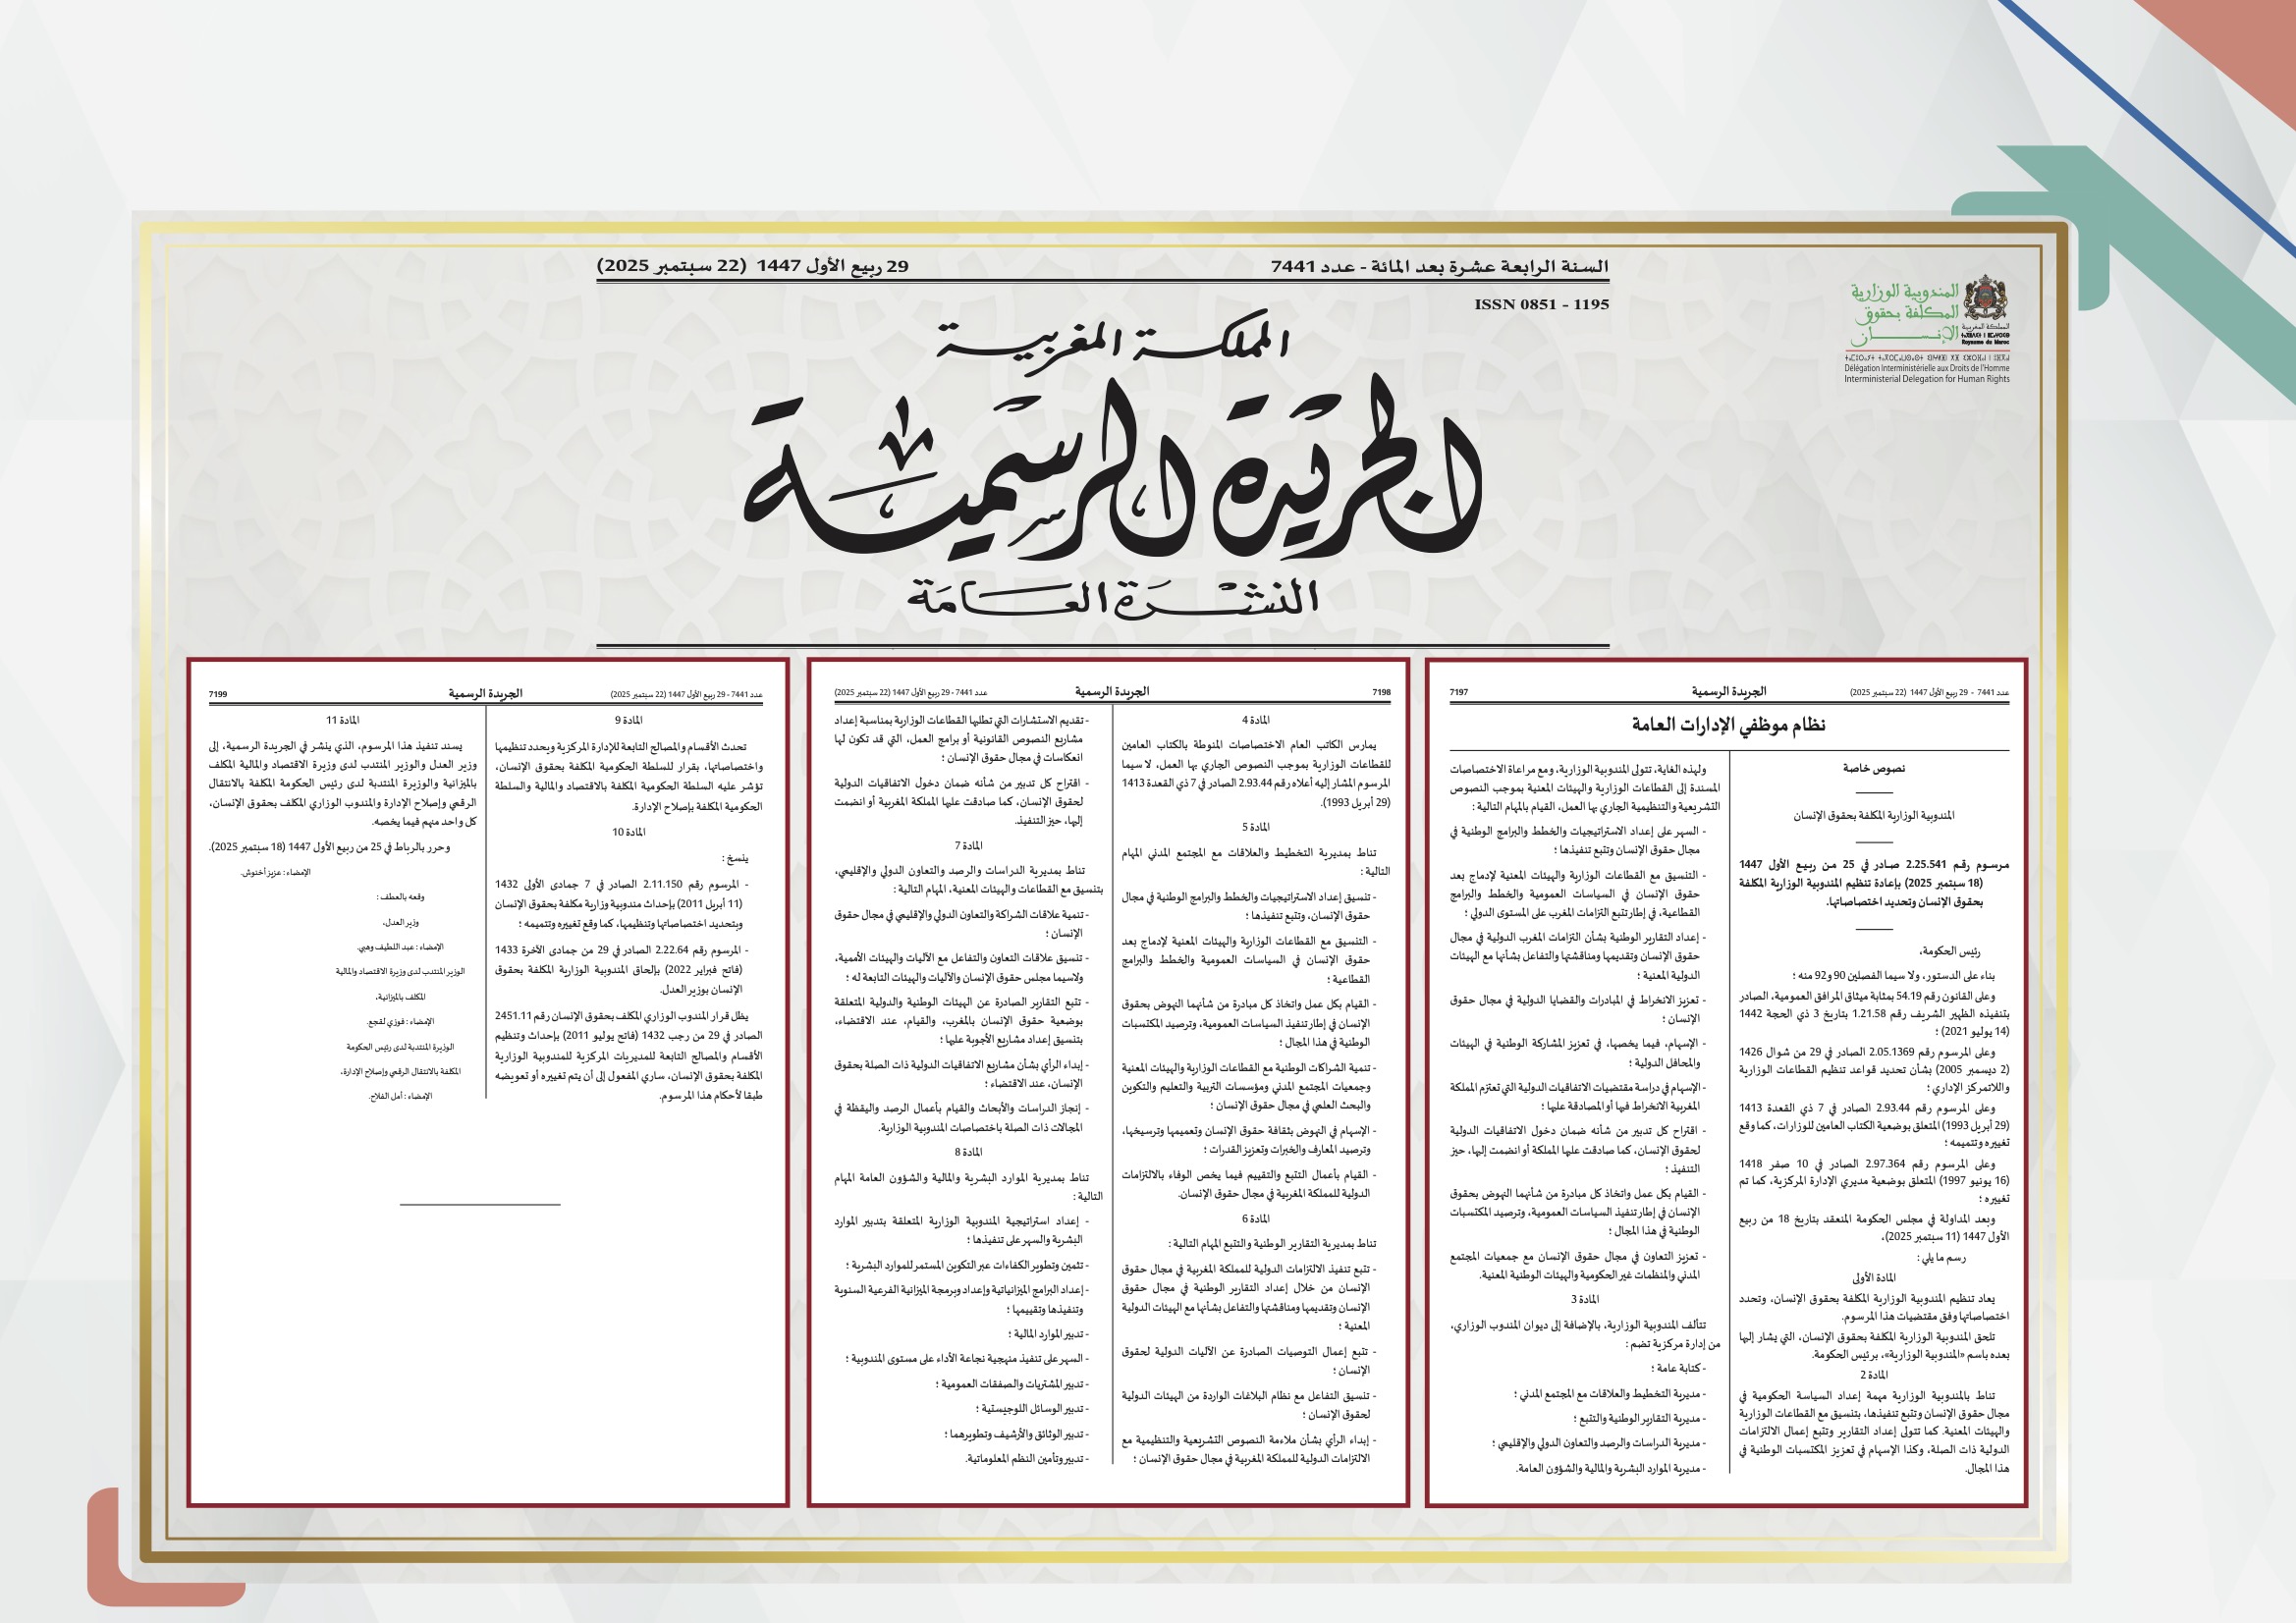 السنة الرابعة عشرة بعد المائة - عدد 7441
29 ربيع الأول 1447 (22 سبتمبر 2025)
ISSN 0851 - 1195
المملكة المغربية
الجريدة الرسمية
النشرة العامة
المندوبية الوزارية
المكلفة بحقوق
الإنسان
المملكة المغربية
Royaume du Maroc
Délégation Interministérielle aux Droits de l'Homme
Interministerial Delegation for Human Rights
عدد 7441 - 29 ربيع الأول 1447 (22 سبتمبر 2025)
الجريدة الرسمية
7197
نظام موظفي الإدارات العامة
نصوص خاصة
المندوبية الوزارية المكلفة بحقوق الإنسان
مرسوم رقم 2.25.541 صادر في 25 من ربيع الأول 1447
(18 سبتمبر 2025) بإعادة تنظيم المندوبية الوزارية المكلفة
بحقوق الإنسان وتحديد اختصاصاتها.
رئيس الحكومة،
بناء على الدستور، ولا سيما الفصلين 90 و92 منه ؛
وعلى القانون رقم 54.19 بمثابة ميثاق المرافق العمومية، الصادر
بتنفيذه الظهير الشريف رقم 1.21.58 بتاريخ 3 ذي الحجة 1442
(14 يوليو 2021) ؛
وعلى المرسوم رقم 2.05.1369 الصادر في 29 من شوال 1426
(2 ديسمبر 2005) بشأن تحديد قواعد تنظيم القطاعات الوزارية
واللاتمركز الإداري ؛
وعلى المرسوم رقم 2.93.44 الصادر في 7 ذي القعدة 1413
(29 أبريل 1993) المتعلق بوضعية الكتاب العامين للوزارات، كما وقع
تغييره وتتميمه ؛
وعلى المرسوم رقم 2.97.364 الصادر في 10 صفر 1418
(16 يونيو 1997) المتعلق بوضعية مديري الإدارة المركزية، كما تم
تغييره ؛
وبعد المداولة في مجلس الحكومة المنعقد بتاريخ 18 من ربيع
الأول 1447 (11 سبتمبر 2025)،
رسم ما يلي :
المادة الأولى
يعاد تنظيم المندوبية الوزارية المكلفة بحقوق الإنسان، وتحدد
اختصاصاتها وفق مقتضيات هذا المرسوم.
تلحق المندوبية الوزارية المكلفة بحقوق الإنسان، التي يشار إليها
بعده باسم «المندوبية الوزارية»، برئيس الحكومة.
المادة 2
تناط بالمندوبية الوزارية مهمة إعداد السياسة الحكومية في
مجال حقوق الإنسان وتتبع تنفيذها، بتنسيق مع القطاعات الوزارية
والهيئات المعنية. كما تتولى إعداد التقارير وتتبع إعمال الالتزامات
الدولية ذات الصلة، وكذا الإسهام في تعزيز المكتسبات الوطنية في
هذا المجال.
ولهذه الغاية، تتولى المندوبية الوزارية، ومع مراعاة الاختصاصات
المسندة إلى القطاعات الوزارية والهيئات المعنية بموجب النصوص
التشريعية والتنظيمية الجاري بها العمل، القيام بالمهام التالية :
- السهر على إعداد الاستراتيجيات والخطط والبرامج الوطنية في
مجال حقوق الإنسان وتتبع تنفيذها ؛
- التنسيق مع القطاعات الوزارية والهيئات المعنية لإدماج بعد
حقوق الإنسان في السياسات العمومية والخطط والبرامج
القطاعية، في إطار تتبع التزامات المغرب على المستوى الدولي ؛
- إعداد التقارير الوطنية بشأن التزامات المغرب الدولية في مجال
حقوق الإنسان وتقديمها ومناقشتها والتفاعل بشأنها مع الهيئات
الدولية المعنية ؛
- تعزيز الانخراط في المبادرات والقضايا الدولية في مجال حقوق
الإنسان ؛
- الإسهام، فيما يخصها، في تعزيز المشاركة الوطنية في الهيئات
والمحافل الدولية ؛
- الإسهام في دراسة مقتضيات الاتفاقيات الدولية التي تعتزم المملكة
المغربية الانخراط فيها أو المصادقة عليها ؛
- اقتراح كل تدبير من شأنه ضمان دخول الاتفاقيات الدولية
لحقوق الإنسان، كما صادقت عليها المملكة أو انضمت إليها، حيز
التنفيذ ؛
- القيام بكل عمل واتخاذ كل مبادرة من شأنهما النهوض بحقوق
الإنسان في إطار تنفيذ السياسات العمومية، وترصيد المكتسبات
الوطنية في هذا المجال ؛
- تعزيز التعاون في مجال حقوق الإنسان مع جمعيات المجتمع
المدني والمنظمات غير الحكومية والهيئات الوطنية المعنية.
المادة 3
تتألف المندوبية الوزارية، بالإضافة إلى ديوان المندوب الوزاري،
من إدارة مركزية تضم :
- كتابة عامة ؛
- مديرية التخطيط والعلاقات مع المجتمع المدني ؛
- مديرية التقارير الوطنية والتتبع ؛
- مديرية الدراسات والرصد والتعاون الدولي والإقليمي ؛
- مديرية الموارد البشرية والمالية والشؤون العامة.
7198
الجريدة الرسمية
عدد 7441 - 29 ربيع الأول 1447 (22 سبتمبر 2025)
المادة 4
يمارس الكاتب العام الاختصاصات المنوطة بالكتاب العامين
للقطاعات الوزارية بموجب النصوص الجاري بها العمل، لا سيما
المرسوم المشار إليه أعلاه رقم 2.93.44 الصادر في 7 ذي القعدة 1413
(29 أبريل 1993).
المادة 5
تناط بمديرية التخطيط والعلاقات مع المجتمع المدني المهام
التالية :
- تنسيق إعداد الاستراتيجيات والخطط والبرامج الوطنية في مجال
حقوق الإنسان، وتتبع تنفيذها ؛
- التنسيق مع القطاعات الوزارية والهيئات المعنية لإدماج بعد
حقوق الإنسان في السياسات العمومية والخطط والبرامج
القطاعية ؛
- القيام بكل عمل واتخاذ كل مبادرة من شأنهما النهوض بحقوق
الإنسان في إطار تنفيذ السياسات العمومية، وترصيد المكتسبات
الوطنية في هذا المجال ؛
- تنمية الشراكات الوطنية مع القطاعات الوزارية والهيئات المعنية
وجمعيات المجتمع المدني ومؤسسات التربية والتعليم والتكوين
والبحث العلمي في مجال حقوق الإنسان ؛
- الإسهام في النهوض بثقافة حقوق الإنسان وتعميمها وترسيخها،
وترصيد المعارف والخبرات وتعزيز القدرات ؛
- القيام بأعمال التتبع والتقييم فيما يخص الوفاء بالالتزامات
الدولية للمملكة المغربية في مجال حقوق الإنسان.
المادة 6
تناط بمديرية التقارير الوطنية والتتبع المهام التالية :
- تتبع تنفيذ الالتزامات الدولية للمملكة المغربية في مجال حقوق
الإنسان من خلال إعداد التقارير الوطنية في مجال حقوق
الإنسان وتقديمها ومناقشتها والتفاعل بشأنها مع الهيئات الدولية
المعنية ؛
- تتبع إعمال التوصيات الصادرة عن الآليات الدولية لحقوق
الإنسان ؛
- تنسيق التفاعل مع نظام البلاغات الواردة من الهيئات الدولية
لحقوق الإنسان ؛
- إبداء الرأي بشأن ملاءمة النصوص التشريعية والتنظيمية مع
الالتزامات الدولية للمملكة المغربية في مجال حقوق الإنسان ؛
- تقديم الاستشارات التي تطلبها القطاعات الوزارية بمناسبة إعداد
مشاريع النصوص القانونية أو برامج العمل، التي قد تكون لها
انعكاسات في مجال حقوق الإنسان ؛
- اقتراح كل تدبير من شأنه ضمان دخول الاتفاقيات الدولية
لحقوق الإنسان، كما صادقت عليها المملكة المغربية أو انضمت
إليها، حيز التنفيذ.
المادة 7
تناط بمديرية الدراسات والرصد والتعاون الدولي والإقليمي،
بتنسيق مع القطاعات والهيئات المعنية، المهام التالية :
- تنمية علاقات الشراكة والتعاون الدولي والإقليمي في مجال حقوق
الإنسان ؛
- تنسيق علاقات التعاون والتفاعل مع الآليات والهيئات الأممية،
ولاسيما مجلس حقوق الإنسان والآليات والهيئات التابعة له ؛
- تتبع التقارير الصادرة عن الهيئات الوطنية والدولية المتعلقة
بوضعية حقوق الإنسان بالمغرب، والقيام، عند الاقتضاء،
بتنسيق إعداد مشاريع الأجوبة عليها ؛
- إبداء الرأي بشأن مشاريع الاتفاقيات الدولية ذات الصلة بحقوق
الإنسان، عند الاقتضاء ؛
- إنجاز الدراسات والأبحاث والقيام بأعمال الرصد واليقظة في
المجالات ذات الصلة باختصاصات المندوبية الوزارية.
المادة 8
تناط بمديرية الموارد البشرية والمالية والشؤون العامة المهام
التالية :
- إعداد استراتيجية المندوبية الوزارية المتعلقة بتدبير الموارد
البشرية والسهر على تنفيذها ؛
- تثمين وتطوير الكفاءات عبر التكوين المستمر للموارد البشرية ؛
- إعداد البرامج الميزانياتية وإعداد وبرمجة الميزانية الفرعية السنوية
وتنفيذها وتقييمها ؛
- تدبير الموارد المالية ؛
- السهر على تنفيذ منهجية نجاعة الأداء على مستوى المندوبية ؛
- تدبير المشتريات والصفقات العمومية ؛
- تدبير الوسائل اللوجيستية ؛
- تدبير الوثائق والأرشيف وتطويرهما ؛
- تدبير وتأمين النظم المعلوماتية.
عدد 7441 - 29 ربيع الأول 1447 (22 سبتمبر 2025)
الجريدة الرسمية
7199
المادة 9
تحدث الأقسام والمصالح التابعة للإدارة المركزية ويحدد تنظيمها
واختصاصاتها، بقرار للسلطة الحكومية المكلفة بحقوق الإنسان،
تؤشر عليه السلطة الحكومية المكلفة بالاقتصاد والمالية والسلطة
الحكومية المكلفة بإصلاح الإدارة.
المادة 10
ينسخ :
- المرسوم رقم 2.11.150 الصادر في 7 جمادى الأولى 1432
(11 أبريل 2011) بإحداث مندوبية وزارية مكلفة بحقوق الإنسان
وبتحديد اختصاصاتها وتنظيمها، كما وقع تغييره وتتميمه ؛
- المرسوم رقم 2.22.64 الصادر في 29 من جمادى الآخرة 1433
(فاتح فبراير 2022) بإلحاق المندوبية الوزارية المكلفة بحقوق
الإنسان بوزير العدل.
يظل قرار المندوب الوزاري المكلف بحقوق الإنسان رقم 2451.11
الصادر في 29 من رجب 1432 (فاتح يوليو 2011) بإحداث وتنظيم
الأقسام والمصالح التابعة للمديريات المركزية للمندوبية الوزارية
المكلفة بحقوق الإنسان، ساري المفعول إلى أن يتم تغييره أو تعويضه
طبقا لأحكام هذا المرسوم.
المادة 11
يسند تنفيذ هذا المرسوم، الذي ينشر في الجريدة الرسمية، إلى
وزير العدل والوزير المنتدب لدى وزيرة الاقتصاد والمالية المكلف
بالميزانية والوزيرة المنتدبة لدى رئيس الحكومة المكلفة بالانتقال
الرقمي وإصلاح الإدارة والمندوب الوزاري المكلف بحقوق الإنسان،
كل واحد منهم فيما يخصه.
وحرر بالرباط في 25 من ربيع الأول 1447 (18 سبتمبر 2025).
الإمضاء : عزيز أخنوش.
وقعه بالعطف :
وزير العدل،
الإمضاء : عبد اللطيف وهبي.
الوزير المنتدب لدى وزيرة الاقتصاد والمالية
المكلف بالميزانية،
الإمضاء : فوزي لقجع.
الوزيرة المنتدبة لدى رئيس الحكومة
المكلفة بالانتقال الرقمي وإصلاح الإدارة،
الإمضاء : أمل الفلاح.